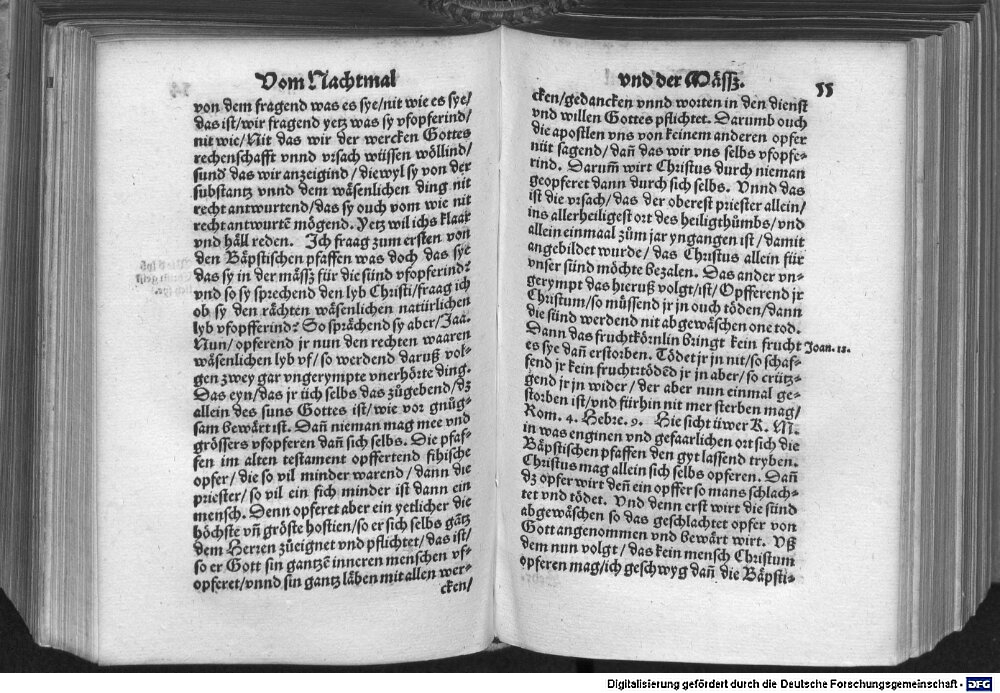 Vom Nachtmal
von dem fragend was es sye/nit wie es sye/
das ist/wir fragend yetz was sy vfopferind/
nit wie/Nit das wir der wercken Gottes
rechenschafft vnnd vrsach wüssen wöllind/
sund das wir anzeigind/diewyl sy von der
substantz vnnd dem wäsenlichen ding nit
recht antwurtend/das sy ouch vom wie nit
recht antwurtẽ mögend. Yetz wil ichs klaar
vnd häll reden. Ich fraag zum ersten von
den Bäpstischen pfaffen was doch das sye
das sy in der mässz für die sünd vfopferind?
vnd so sy sprechend den lyb Christi/fraag ich
ob sy den rächten wäsenlichen natürlichen
lyb vfopfferind? So sprächend sy aber/Jaa.
Nun/opferend jr nun den rechten waaren
wäsenlichen lyb vf/so werdend daruß vol-
gen zwey gar vngerympte vnerhörte ding.
Das eyn/das jr üch selbs das zůgebend/dz
allein des suns Gottes ist/wie vor gnůg-
sam bewärt ist. Dañ nieman mag mee vnd
grössers vfopferen dañ sich selbs. Die pfaf-
fen im alten testament opffertend fihische
opfer/die so vil minder warend/dann die
priester/so vil ein fich minder ist dann ein
mensch. Denn opferet aber ein yetlicher die
höchste vñ gröste hostien/so er sich selbs gãtz
dem Herzen zůeignet vnd pflichtet/das ist/
so er Gott sin gantzẽ inneren menschen vf-
opferet/vnnd sin gantz läben mit allen wer-
cken/
vnd der Mässz.
55
cken/gedancken vnnd worten in den dienst
vnd willen Gottes pflichtet. Darumb ouch
die apostlen vns von keinem anderen opfer
nüt sagend/dañ das wir vns selbs vfopfe-
rind. Darum̃ wirt Christus durch nieman
geopferet dann durch sich selbs. Vnnd das
ist die vrsach/das der oberest priester allein/
ins allerheiligest ort des heiligthůmbs/vnd
allein einmaal zům jar yngangen ist/damit
angebildet wurde/das Christus allein für
vnser sünd möchte bezalen. Das ander vn-
gerympt das hieruß volgt/ist/Opfferend jr
Christum/so müssend jr jn ouch töden/dann
die sünd werdend nit abgewäschen one tod.
Dann das fruchtkörnlin bringt kein frucht
Joan. 12.
es sye dañ erstorben. Tödet jr jn nit/so schaf-
fend jr kein frucht:tödẽd jr jn aber/so crütz-
gend jr jn wider/der aber nun einmal ge-
storben ist/vnd fürhin nit mer sterben mag/
Rom. 4. Hebre. 9. Hie sicht üwer K. M.
in was enginen vnd gefaarlichen ort sich die
Bäpstischen pfaffen den gyt lassend tryben.
Christus mag allein sich selbs opferen. Dañ
dz opfer wirt deñ ein opffer so mans schlach-
tet vnd tödet. Vnd denn erst wirt die sünd
abgewäschen so das geschlachtet opfer von
Gott angenommen vnd bewärt wirt. Vß
dem nun volgt/das kein mensch Christum
opferen mag/ich geschwyg dañ die Bäpsti-
Digitalisierung gefördert durch die Deutsche Forschungsgemeinschaft - DFG